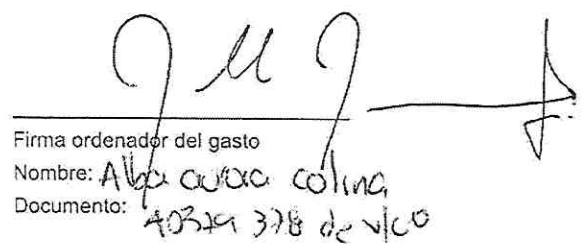 Firma ordenador del gasto
Nombre: Alba aurora colina
Documento: 40379 378 de v/co